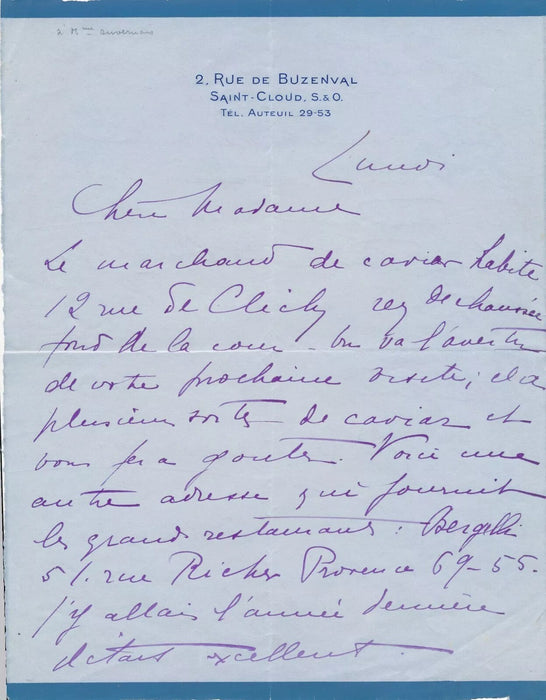 à Mme Auvernais
2, RUE DE BUZENVAL
SAINT-CLOUD, S.&O.
TÉL. AUTEUIL 29-53
Lundi
Chère Madame
Le marchand de caviar habite
12 rue de Clichy rez de chaussée
fond de la cour - on va l'avertir
de votre prochaine visite; il a
plusieurs sortes de caviar et
vous fera gouter. Voici une
autre adresse qui fournit
les grands restaurants : Bergalli
51. rue Richer Provence 69-55.
J'y allais l'année dernière
c'était excellent.